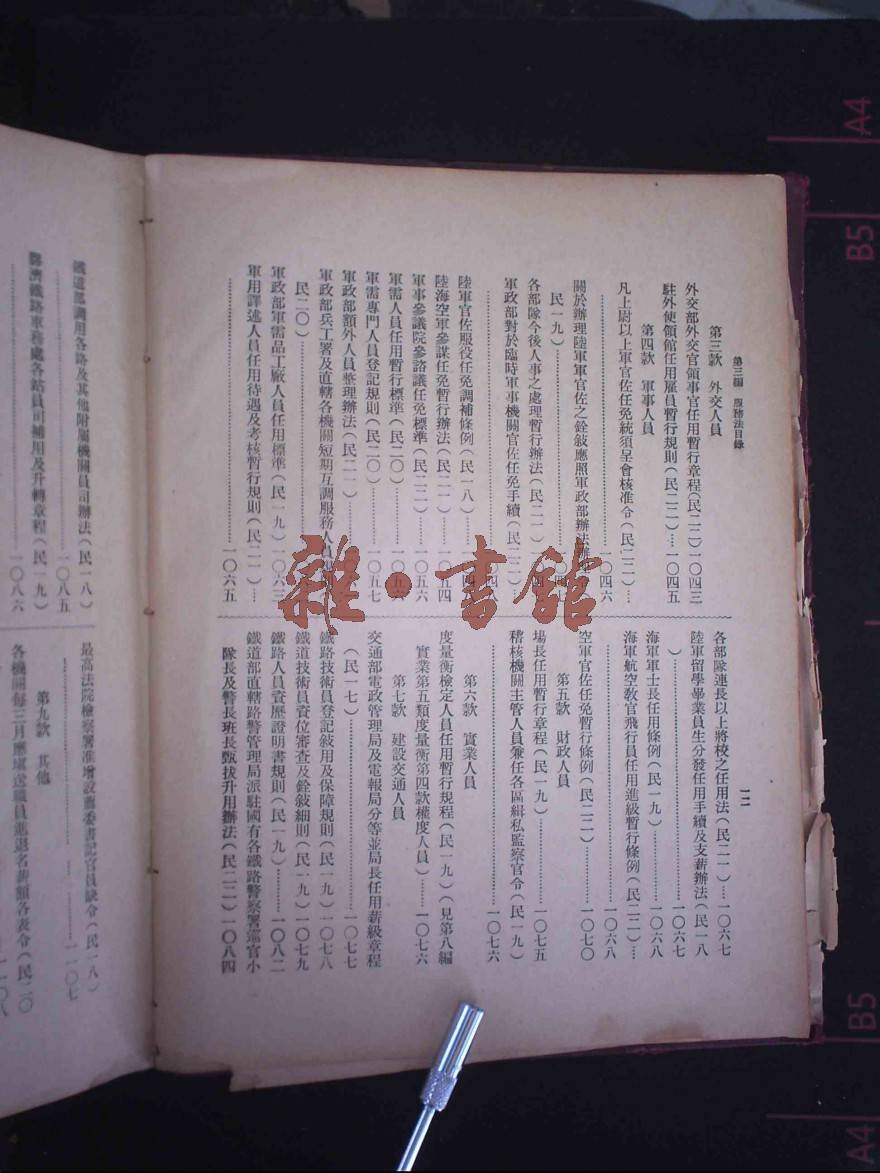 第三編　服務法目錄
一二
第三款　外交人員
外交部外交官領事官任用暫行章程(民二二)一〇四三
駐外使領館任用雇員暫行規則(民二二)…一〇四五
第四款　軍事人員
凡上尉以上軍官佐任免統須呈會核准令(民二二)…
……一〇四六
關於辦理陸軍軍官佐之銓敍應照軍政部辦法辦
民一九)……
各部隊今後人事之處理暫行辦法(民二一)
軍政部對於臨時軍事機關官佐任免手續(民二二)
陸軍官佐服役任免調補條例(民一八)……
陸海空軍參謀任免暫行辦法(民二一)……一〇五四
軍事參議院參諮議任免標準(民二二)……一〇五六
軍需人員任用暫行標準(民二〇)……一〇五六
軍需專門人員登記規則(民二〇)……一〇五七
軍政部額外人員整理辦法(民二一)……
軍政部兵工署及直轄各機關短期互調服務人員
民二〇)……
軍政部軍需品工廠人員任用標準(民一九)一〇六三
軍用譯述人員任用待遇及考核暫行規則(民二一)…
……一〇六五
各部隊連長以上將校之任用法(民二一)…一〇六七
陸軍留學畢業員生分發任用手續及支薪辦法(民一八
)……一〇六七
海軍軍士長任用條例(民一九)……一〇六八
海軍航空教官飛行員任用進級暫行條例(民二二)…
……一〇六八
空軍官佐任免暫行條例(民二二)……一〇七〇
第五款　財政人員
場長任用暫行章程(民一九)……一〇七五
稽核機關主管人員兼任各區緝私監察官令(民一九)
……一〇七六
第六款　實業人員
度量衡檢定人員任用暫行規程(民一九)(見第八編
實業第五類度量衡第四款權度人員)……一〇七六
第七款　建設交通人員
交通部電政管理局及電報局分等並局長任用薪級章程
(民一七)……一〇七七
鐵路技術員登記敍用及保障規則(民一九)一〇七八
鐵道技術員資位審查及銓敍細則(民一九)一〇七九
鐵路人員資歷證明書規則(民一九)……一〇八二
鐵道部直轄路警管理局派駐國有各鐵路警察署巡官小
隊長及警長班長甄拔升用辦法(民二二)一〇八四
鐵道部調用各路及其他附屬機關員司辦法(民一八)
……一〇八五
膠濟鐵路車務處各站員司補用及升轉章程(民一九)
……一〇八六
最高法院檢察署准增設薦委書記官員缺令(民一八)
……一一〇七
第九款　其他
各機關每三月應填送職員進退名薪額各表令(民二〇
雜·書館
A4
B5
B5
A4